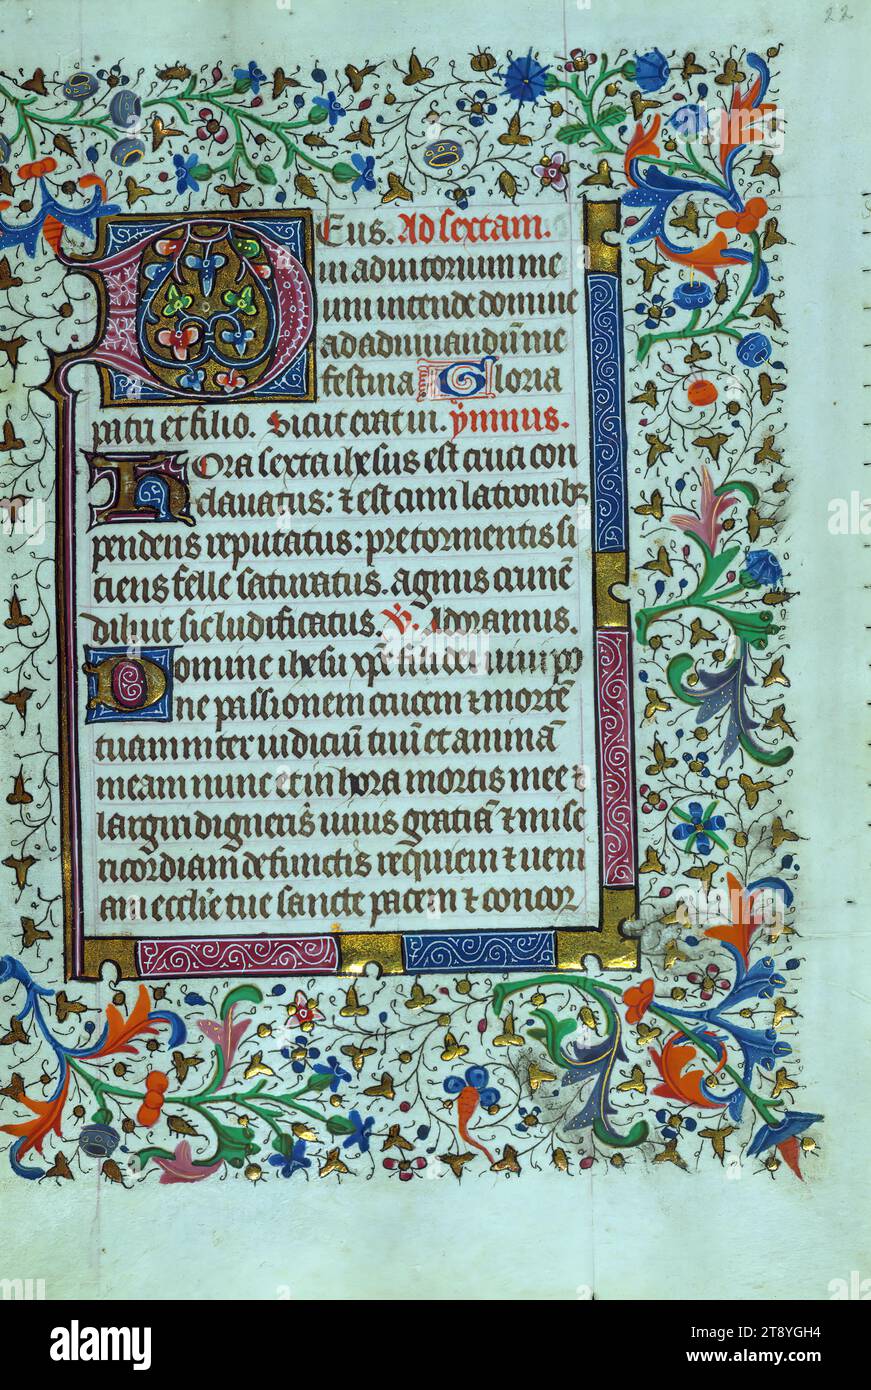 22
DEus. Ad sextam.
in adiutorium me
um intende domine
ad adiuuandū me
festina Gloria
patri et filio. Sicut erat in. ymnus.
HOra sexta ihesus est cruci con
clauatus: ⁊ est cum latronibꝫ
pendens reputatus: pre tormentis si
ciens felle saturatus. agnus crimē
diluit sic ludificatus. V̄. Adoramus.
Domine ihesu xp̄e fili dei uiui po
ne passionem crucem ⁊ mortē
tuam inter iudiciū tuū et animā
meam nunc et in hora mortis mee ⁊
largiri digneris uiuis gratiā ⁊ mise
ricordiam defunctis requiem ⁊ ueni
am ecclīe tue sancte pacem ⁊ concor
a
alamy
alamy
Image ID: 2T8YGH4
www.alamy.com